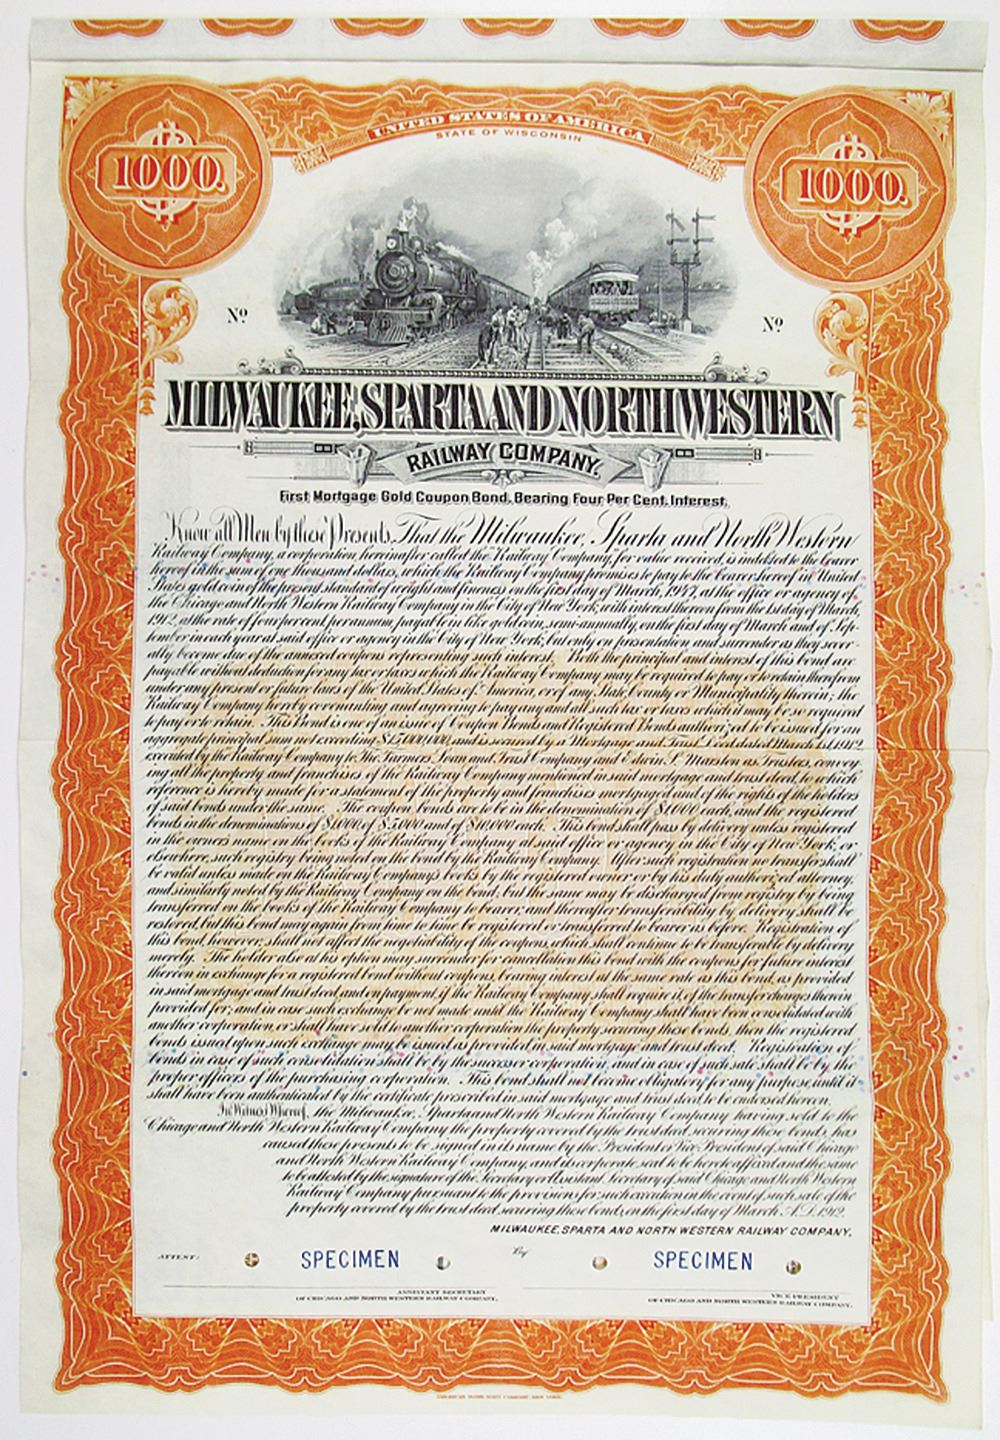 UNITED STATES OF AMERICA
STATE OF WISCONSIN
1000.
1000.
Nº
Nº
MILWAUKEE, SPARTA AND NORTH WESTERN
RAILWAY COMPANY.
First Mortgage Gold Coupon Bond, Bearing Four Per Cent. Interest.
Know all Men by these Presents, That the Milwaukee, Sparta and North Western
Railway Company, a corporation hereinafter called the Railway Company, for value received, is indebted to the bearer
hereof in the sum of one thousand dollars, which the Railway Company promises to pay to the bearer hereof in United
States gold coin of the present standard of weight and fineness on the first day of March, 1947, at the office or agency of
the Chicago and North Western Railway Company in the City of New York, with interest thereon from the 1st day of March,
1912, at the rate of four per cent per annum, payable in like gold coin, semi-annually, on the first day of March and of Sep-
tember in each year at said office or agency in the City of New York, but only on presentation and surrender as they sever-
ally become due of the annexed coupons representing such interest. Both the principal and interest of this bond are
payable without deduction for any tax or taxes which the Railway Company may be required to pay or to retain therefrom
under any present or future laws of the United States of America, or of any State, County or Municipality therein; the
Railway Company hereby covenanting and agreeing to pay any and all such tax or taxes which it may be so required
to pay or to retain. This Bond is one of an issue of Coupon Bonds and Registered Bonds authorized to be issued for an
aggregate principal sum not exceeding $15,000,000, and is secured by a Mortgage and Trust Deed dated March 1st, 1912,
executed by the Railway Company to The Farmers' Loan and Trust Company and Edwin S. Marston as Trustees, convey-
ing all the property and franchises of the Railway Company mentioned in said mortgage and trust deed, to which
reference is hereby made for a statement of the property and franchises mortgaged and of the rights of the holders
of said bonds under the same. The coupon bonds are to be in the denomination of $1,000 each, and the registered
bonds in the denominations of $1,000, of $5,000 and of $10,000 each. This bond shall pass by delivery unless registered
in the owners name on the books of the Railway Company at said office or agency in the City of New York, or
elsewhere, such registry being noted on the bond by the Railway Company. After such registration no transfer shall
be valid unless made on the Railway Company's books by the registered owner or by his duly authorized attorney,
and similarly noted by the Railway Company on the bond, but the same may be discharged from registry by being
transferred on the books of the Railway Company to bearer, and thereafter transferability by delivery shall be
restored, but this bond may again from time to time be registered or transferred to bearer as before. Registration of
this bond, however, shall not affect the negotiability of the coupons, which shall continue to be transferable by delivery
merely. The holder also at his option may surrender for cancellation this bond with the coupons for future interest
thereon in exchange for a registered bond without coupons, bearing interest at the same rate as this bond, as provided
in said mortgage and trust deed, and on payment, if the Railway Company shall require it, of the transfer charges therein
provided for; and in case such exchange be not made until the Railway Company shall have been consolidated with
another corporation, or shall have sold to another corporation the property securing these bonds, then the registered
bonds issued upon such exchange may be issued as provided in said mortgage and trust deed. Registration of
bonds in case of such consolidation shall be by the successor corporation, and in case of such sale shall be by the
proper officers of the purchasing corporation. This bond shall not become obligatory for any purpose, until it
shall have been authenticated by the certificate prescribed in said mortgage and trust deed to be endorsed hereon.
In Witness Whereof, the Milwaukee, Sparta and North Western Railway Company having sold to the
Chicago and North Western Railway Company the property covered by the trust deed securing these bonds, has
caused these presents to be signed in its name by the President or Vice President of said Chicago
and North Western Railway Company, and its corporate seal to be hereto affixed and the same
to be attested by the signature of the Secretary or Assistant Secretary of said Chicago and North Western
Railway Company pursuant to the provisions for such execution in the event of such sale of the
property covered by the trust deed securing these bonds, on the first day of March A.D. 1912.
MILWAUKEE, SPARTA AND NORTH WESTERN RAILWAY COMPANY,
ATTEST:
SPECIMEN
By
SPECIMEN
ASSISTANT SECRETARY
OF CHICAGO AND NORTH WESTERN RAILWAY COMPANY.
VICE PRESIDENT
OF CHICAGO AND NORTH WESTERN RAILWAY COMPANY.
AMERICAN BANK NOTE COMPANY, NEW YORK.